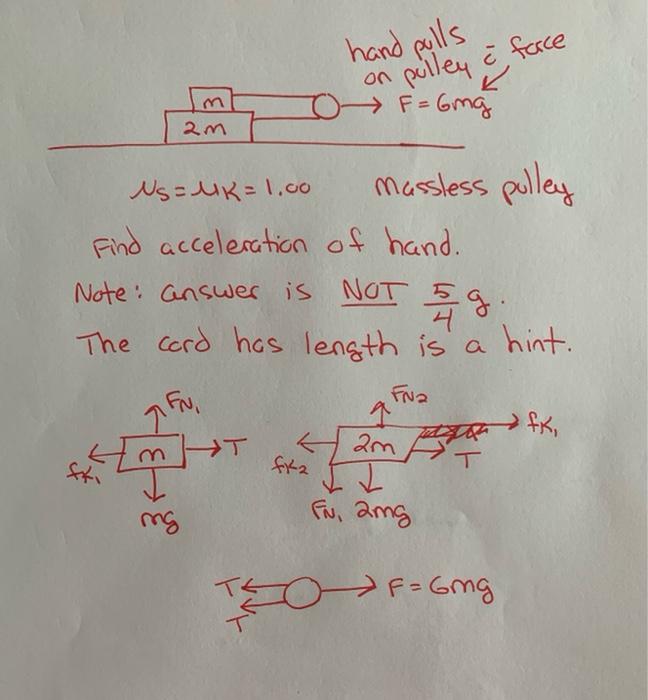 hand pulls
on pulley c̄ force
m
F = 6mg
2m
μs = μk = 1.00 Massless pulley
Find acceleration of hand.
Note: answer is NOT 5/4 g.
The cord has length is a hint.
FN1 FN2
m T 2m fk1
fk1 fk2 T
mg FN1 2mg
T F = 6mg
T